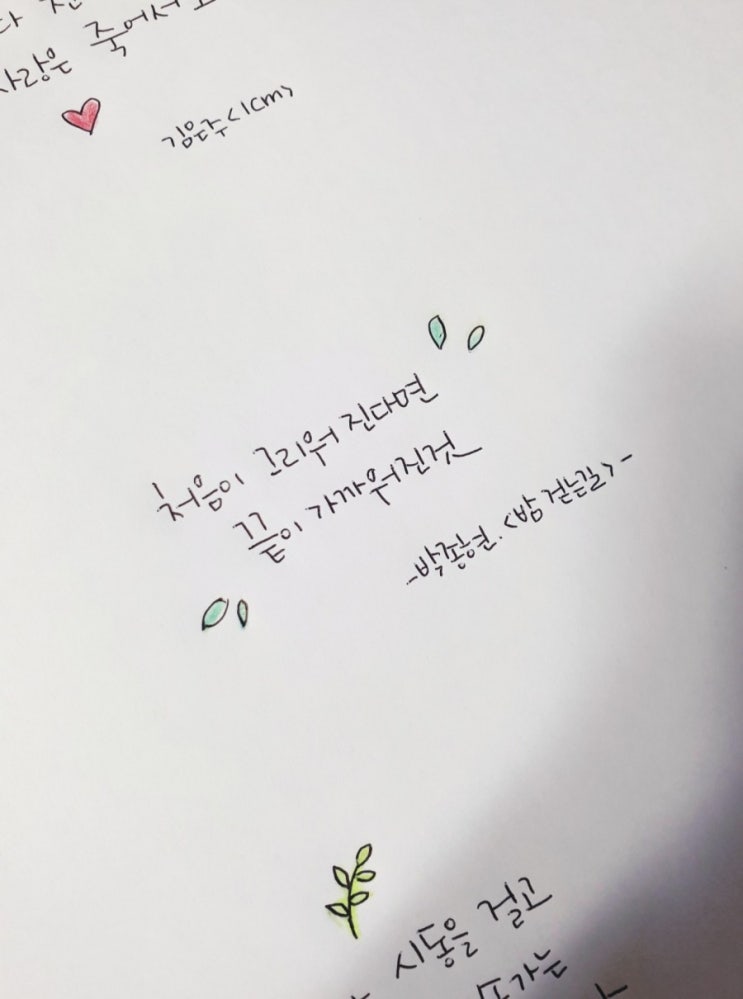 사랑은 죽어서
김은주<1cm>
처음이 그리워 진다면
끝이 가까워진것
-박종현.<밤 걷는길>-
시동을 걸고